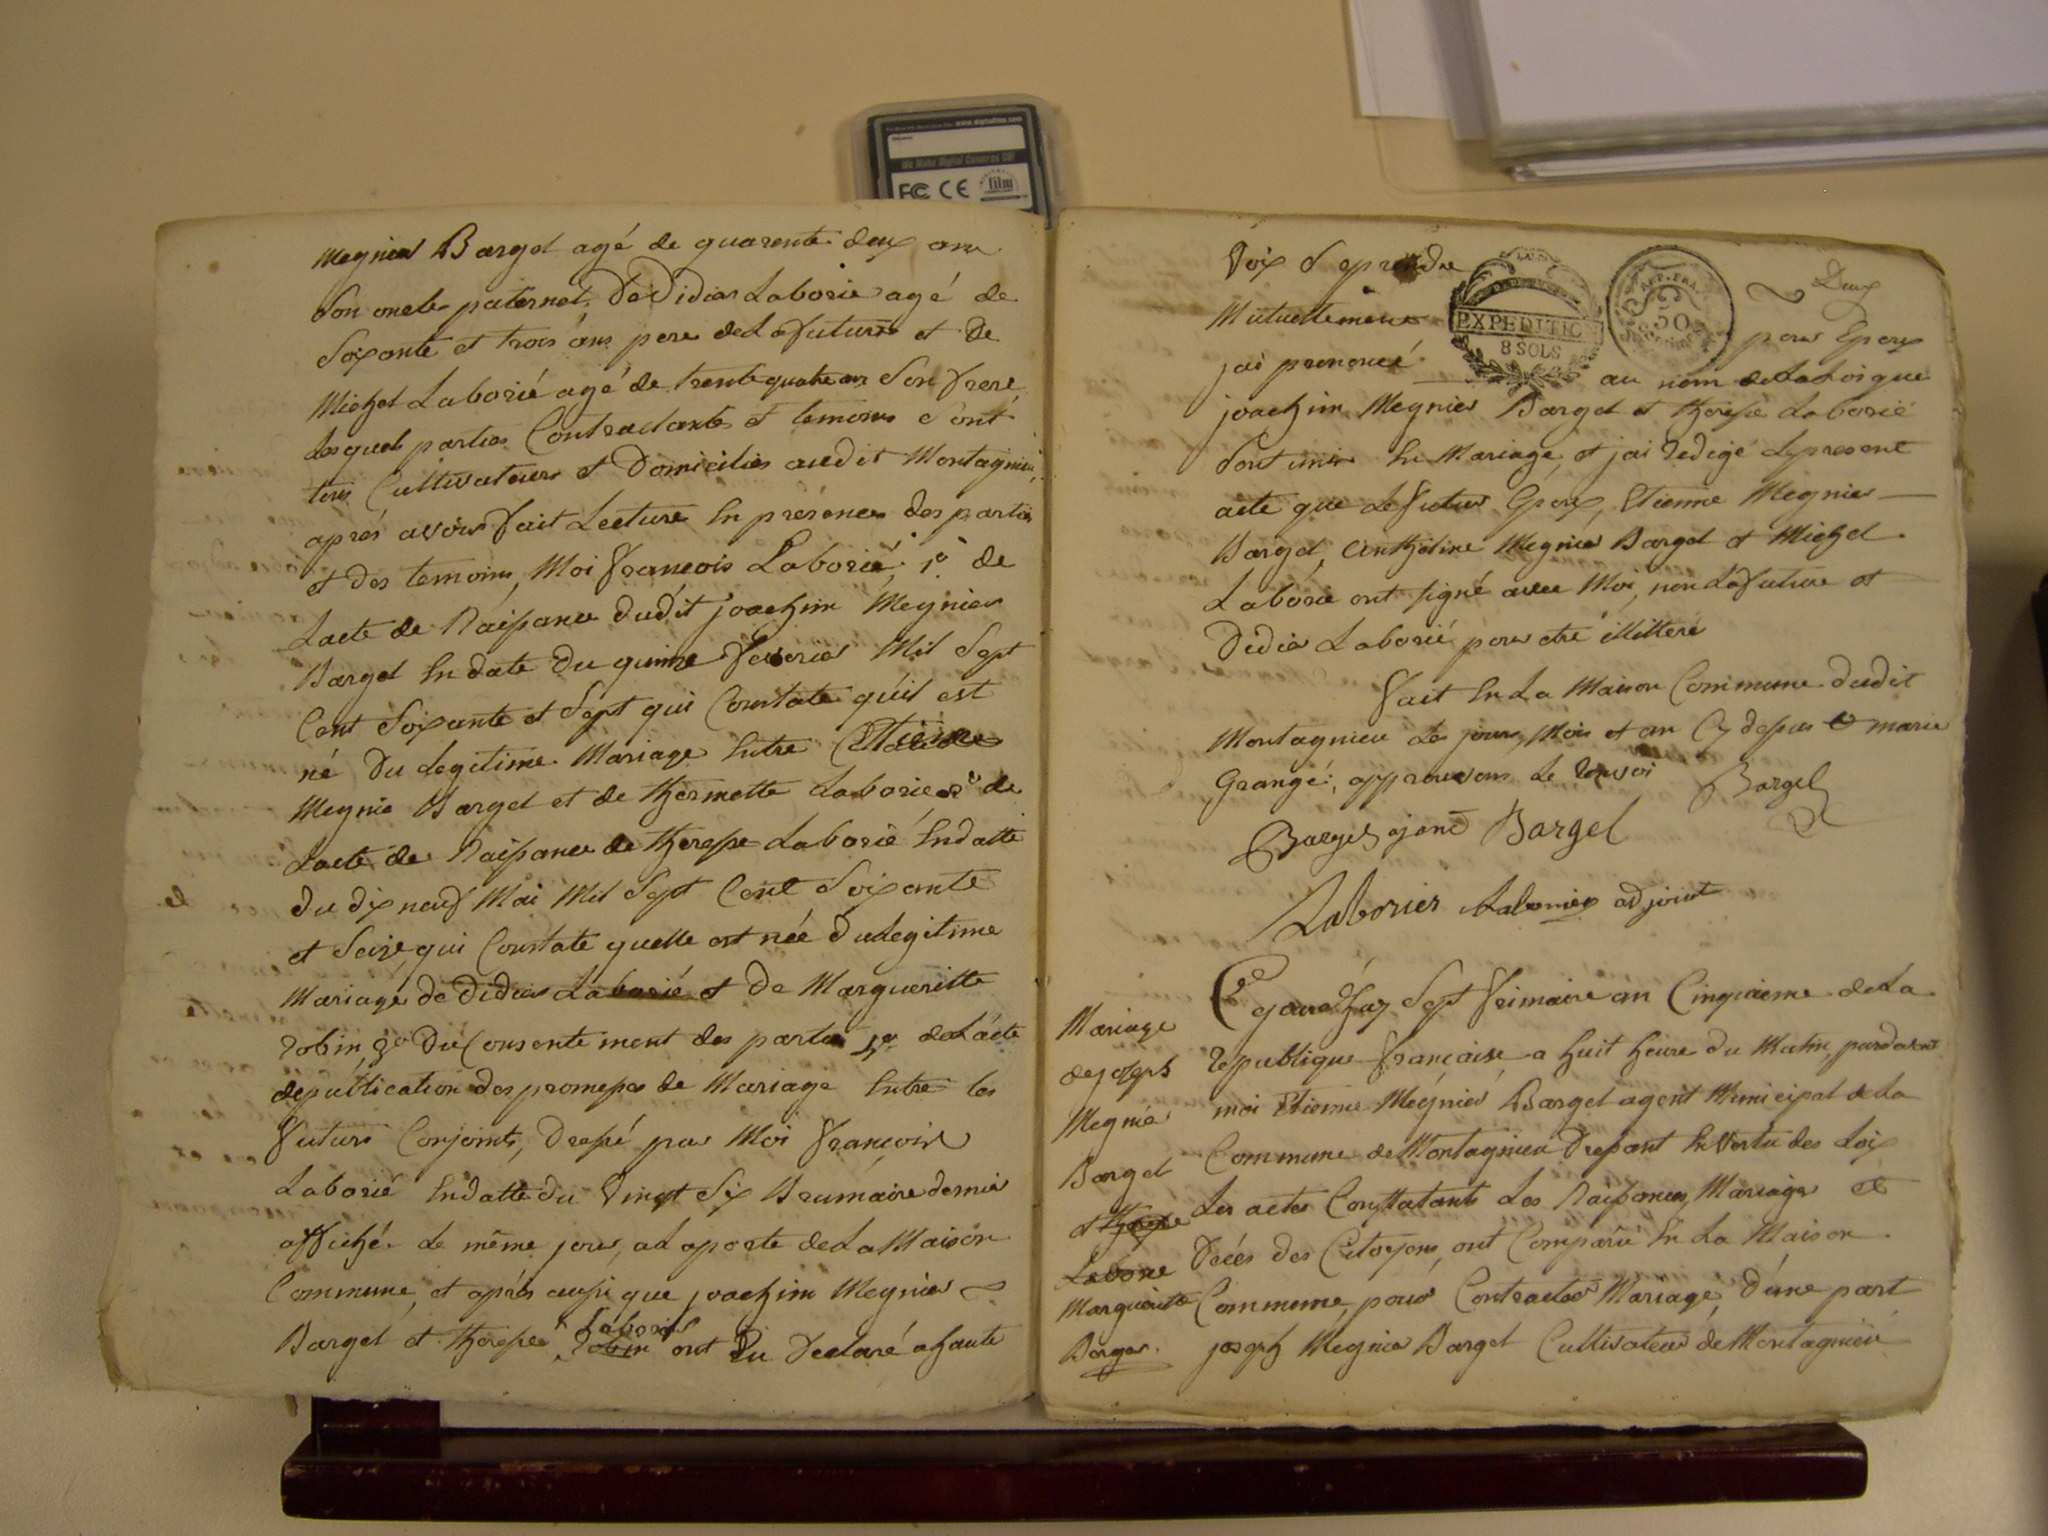 www.digitalfilm.com
We Make Digital Cameras Go!
FC CE film
Megnier Bargel agé de quarente deux ans
Son oncle paternel, De Didier Laborie agé de
Soixante et trois ans pere de La future et de
Michel Laborié agé de trente quatre ans Son frere
Les quels parties Contractante et temoins sont
tous Cultivateurs et Domiciliés audit Montagnieu,
aprés avoir fait Lecture En présence des parties
et des temoins, Moi francois Laborié, 1º de
Lacte de Naissance dudit joachim Megnier
Bargel En date du quinze fevrier Mil Sept
Cent Soixante et Sept qui Constate qu'il est
né Du Legitime Mariage Entre
Megnié Bargel et de thermette Laborie 2º de
Lacte de Naissance de therese Laborié En datte
du dix neuf Mai Mil Sept Cent Soixante
et Seize qui Constate quelle est née du Legitime
Mariage de Didier Laborié et De Margueritte
robin 3º Du Consentement des partie de Lacte
de publication des promesses de Mariage Entre les
futurs Conjoints, Dressé par Moi francois
Laborié En datte du Vingt Six Brumaire dernier
affiché Le même jour, a La porte de La Maison
Commune, et aprés aussi que joachim Megnier
Bargel et therese Laborié robin ont Declaré a haute
Deux
Voix Se prendre
Mutuellement
EXPEDITION
8 SOLS
50
pour Epoux
jai prononcé
au nom de La Loi que
joachim Megnier Bargel et therese Laborié
Sont unis En Mariage, et jai redigé Le present
acte que Le futur Epoux, Etienne Megnier
Bargel, Anthelme Megnier Bargel et Michel
Laborié ont signé avec Moi, non La future et
Didier Laborié pour etre illitteré
Fait En La Maison Commune dudit
Montagnieu Les jour, Mois et an Cy dessus marie
Grangé; approuvons Le renvoi Bargel
Bargel Bargel
Laborier Laborier adjoint
Mariage
de joseph
Megnié
Bargel
et therese
Laborie
Margueritte
Berger
Ce jourdhuy Sept frimaire an Cinquieme de La
republique francaise, a huit heure du Matin, pardevant
moi Etienne Mégnier Bargel agent Municipal de La
Commune de Montagnieu Dressant En Vertu des Loix
Les actes Constatants Les Naissances, Mariages et
Décés des Citoyens, ont Comparu En La Maison
Commune, pour Contracter Mariage, D'une part
joseph Megnier Bargel Cultivateur de Montagnieu